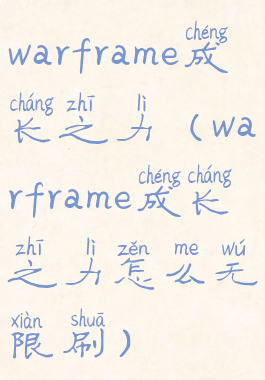 chéng
warframe成
cháng zhī lì
长之力（wa
chéng cháng
rframe成长
zhī lì zěn me wú
之力怎么无
xiàn shuā
限刷）